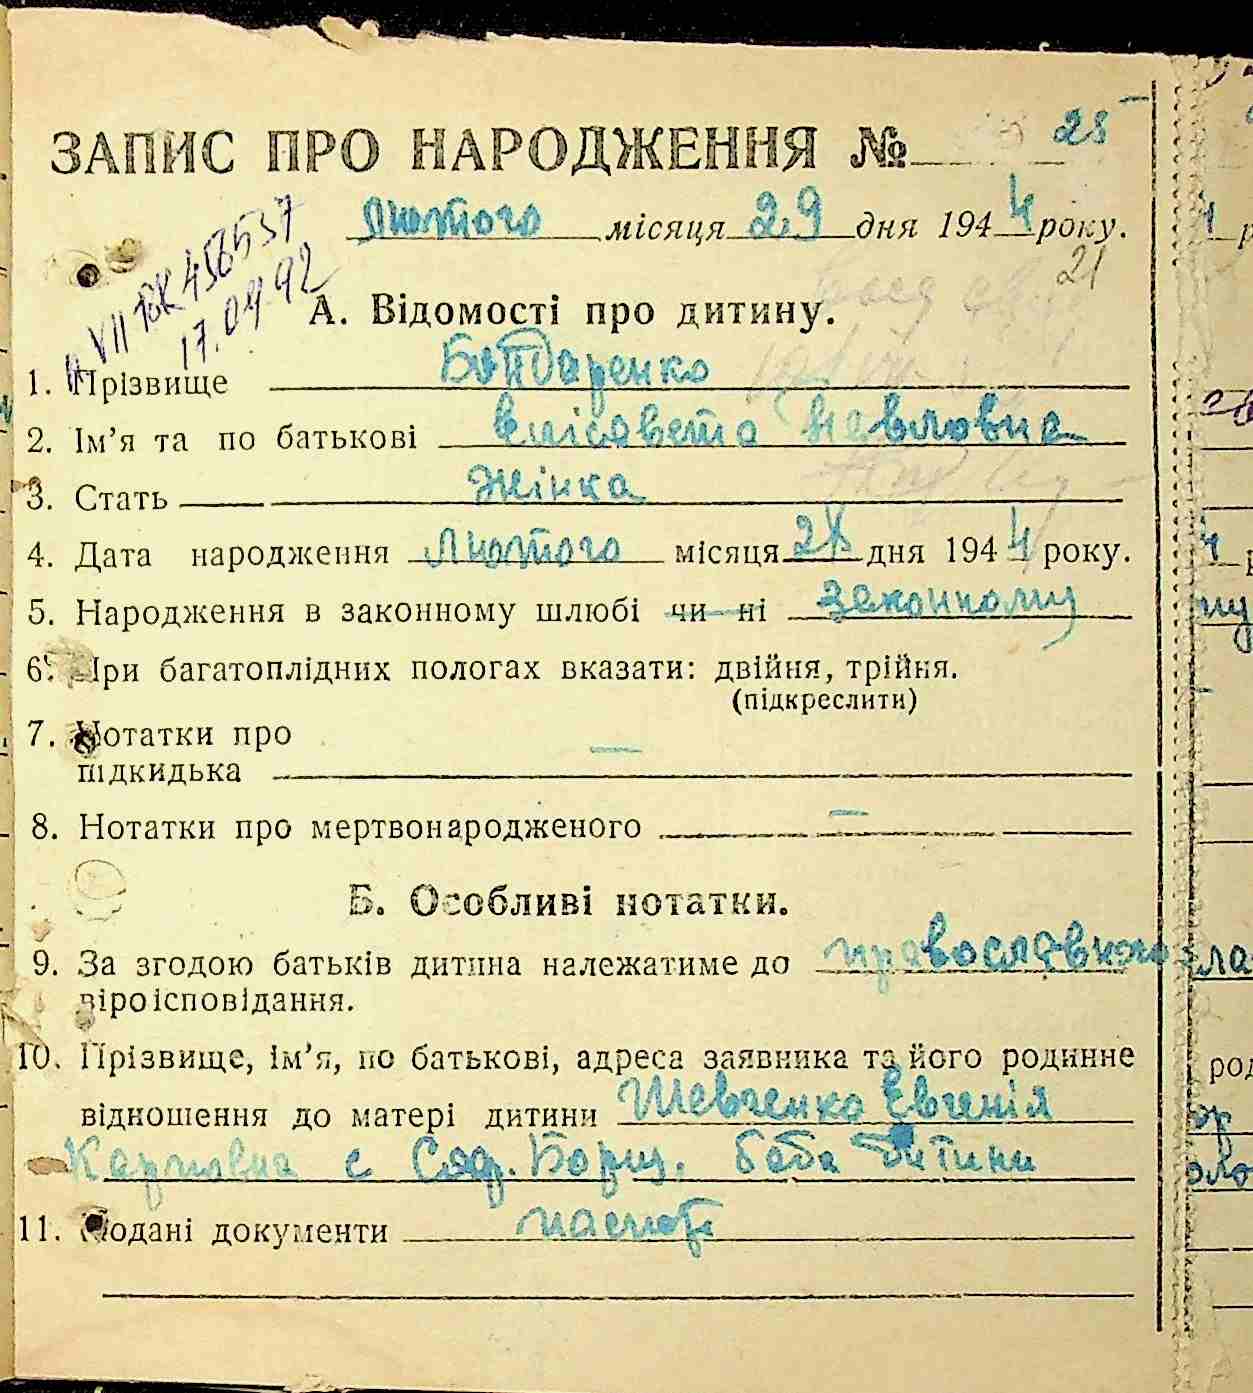 ЗАПИС ПРО НАРОДЖЕННЯ № 25
лютого місяця 29 дня 1944 року.
21
VII БК 456537
17.04.92
А. Відомості про дитину.
1. Прізвище Бондаренко
2. Ім’я та по батькові Елісавета Павловна
3. Стать Жінка
4. Дата народження лютого місяця 28 дня 1944 року.
5. Народження в законному шлюбі чи ні законному
6. При багатоплідних пологах вказати: двійня, трійня.
(підкреслити)
7. Нотатки про
підкидька —
8. Нотатки про мертвонародженого —
Б. Особливі нотатки.
9. За згодою батьків дитина належатиме до православного
віроісповідання.
10. Прізвище, ім’я, по батькові, адреса заявника та його родинне
відношення до матері дитини Шевченко Евгенія
Карповна с Сяд. Борщ. баба дитини
11. Подані документи паспорт